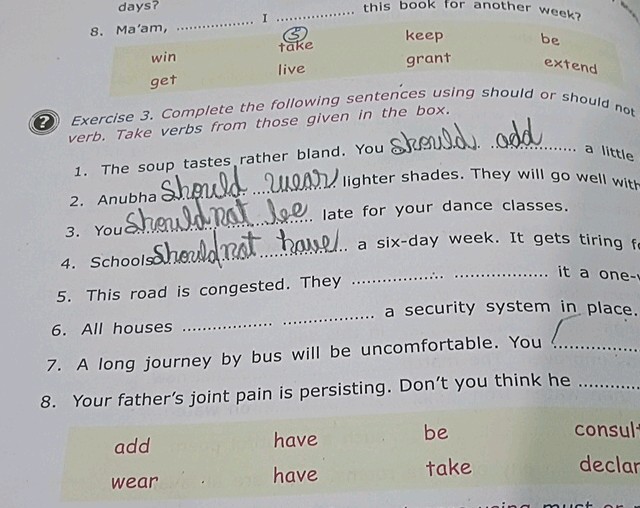 days?
8. Ma'am, .................... I .................... this book for another week?
win take keep be
5
get live grant extend
? Exercise 3. Complete the following sentences using should or should not
verb. Take verbs from those given in the box.
1. The soup tastes rather bland. You should add a little
2. Anubha Should wear lighter shades. They will go well with
3. You Should not bee late for your dance classes.
4. Schools Should not have a six-day week. It gets tiring
5. This road is congested. They .................... .................... it a one-
6. All houses .................... .................... a security system in place.
7. A long journey by bus will be uncomfortable. You ....................
8. Your father's joint pain is persisting. Don't you think he ............
add have be consul
wear have take declar
must or